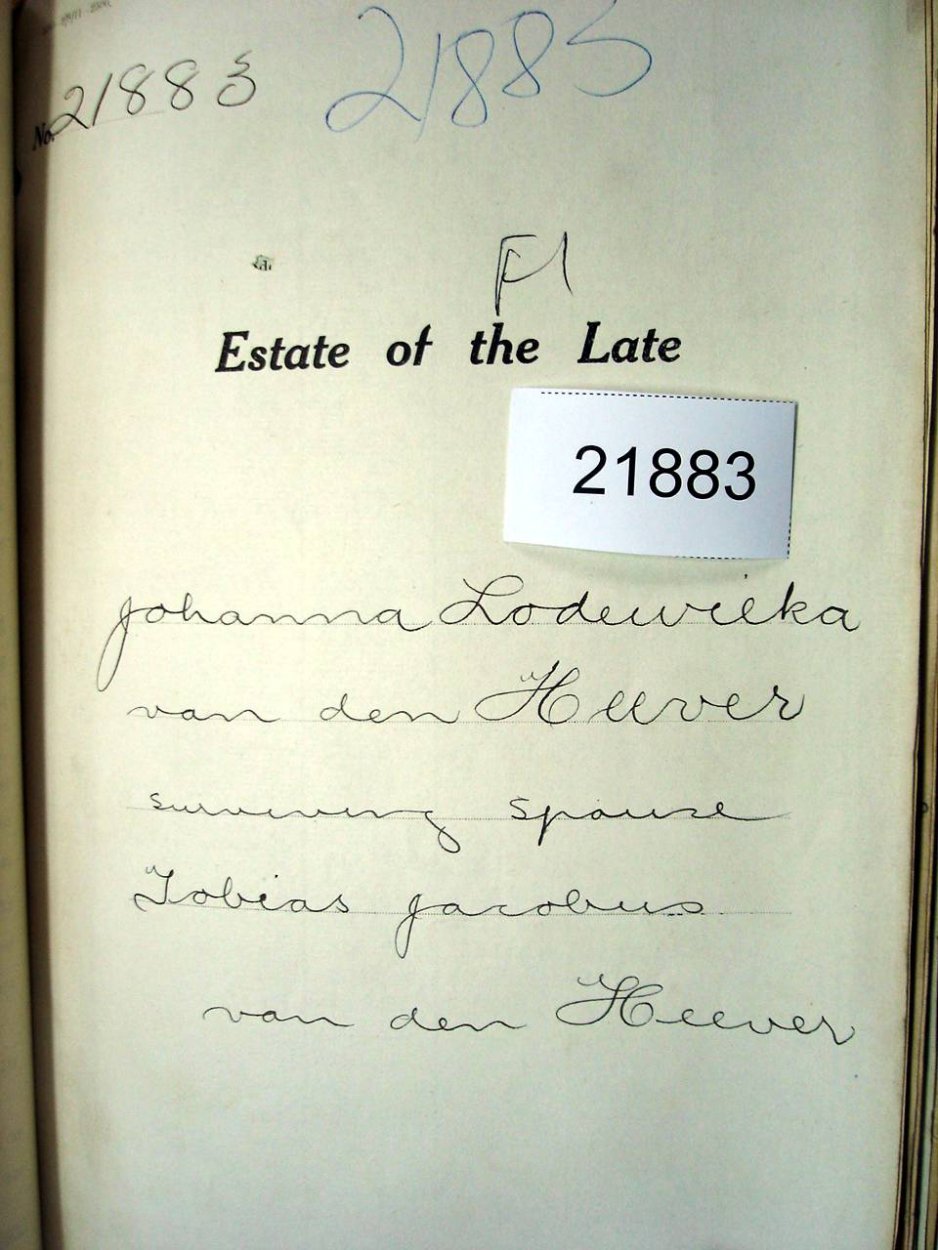 21883
No. 21883
F1
Estate of the Late
21883
Johanna Lodewieka
van den Heever
surviving spouse
Tobias Jacobus
van den Heever